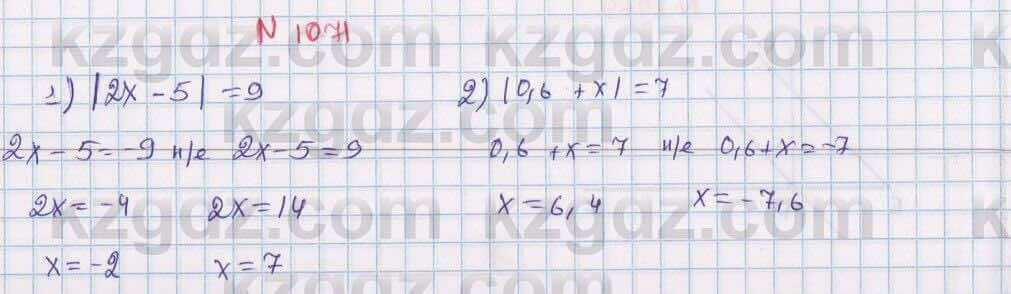 N 1071
1) |2x - 5| = 9 2) |0,6 + x| = 7
2x - 5 = -9 н/е 2x - 5 = 9 0,6 + x = 7 н/е 0,6 + x = -7
2x = -4 2x = 14 x = 6,4 x = -7,6
x = -2 x = 7
kzgdz.com